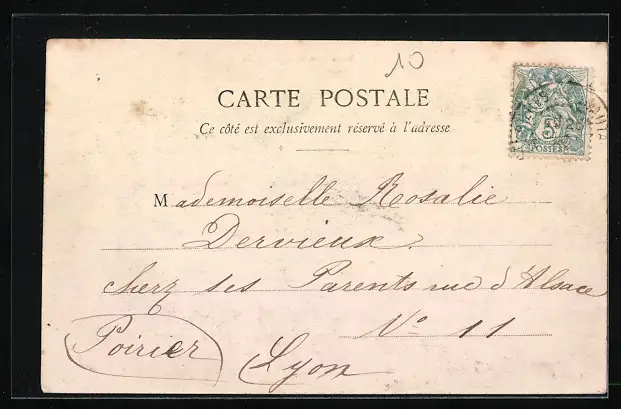 10
CARTE POSTALE
Ce côté est exclusivement réservé à l'adresse
Mademoiselle Rosalie
Dervieux.
chez ses Parents rue d'Alsace
N° 11
Poirier Lyon
5
POSTES